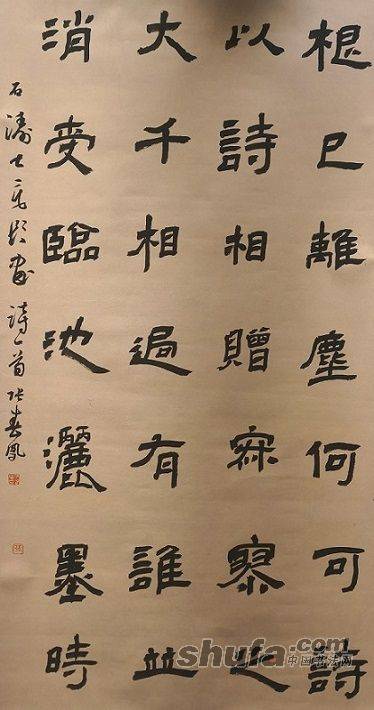 根已離塵何可詩
以詩相贈寂寥之
大千相過有誰並
消受臨池灑墨時
石濤七言題畫詩一首 张春鳳
shufa.com
中国书法网